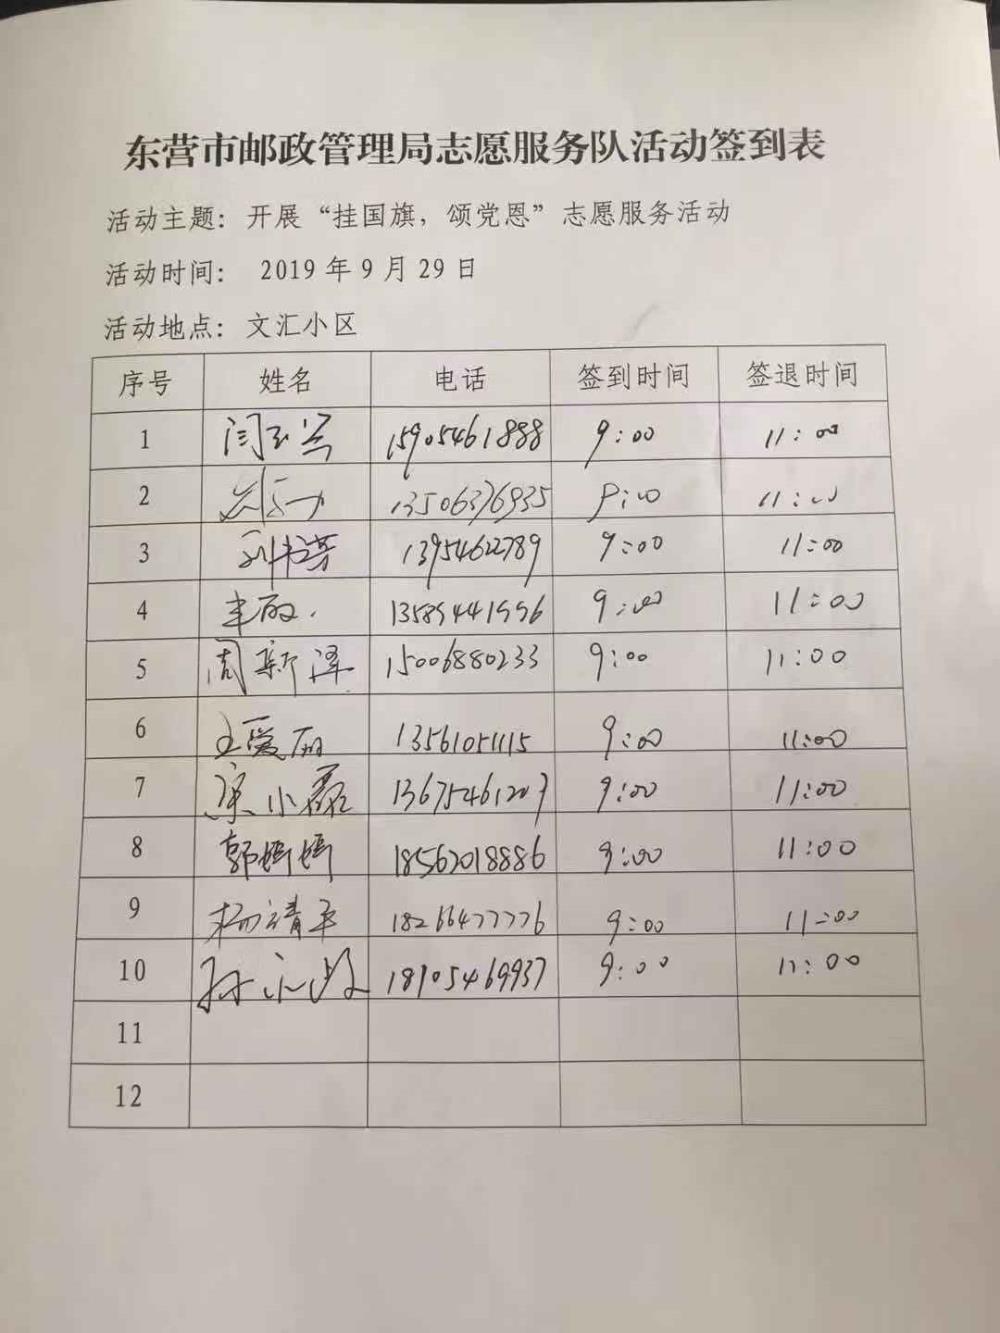 东营市邮政管理局志愿服务队活动签到表
活动主题：开展“挂国旗，颂党恩”志愿服务活动
活动时间： 2019 年 9 月 29 日
活动地点：文汇小区
序号 姓名 电话 签到时间 签退时间
1 15905461888 9:00 11:00
2 13506376935 9:00 11:00
3 13954622789 9:00 11:00
4 13589441996 9:00 11:00
5 周新泽 15006880233 9:00 11:00
6 王爱丽 13561051115 9:00 11:00
7 小磊 13675461207 9:00 11:00
8 郭娟娟 18562018886 9:00 11:00
9 杨靖平 18266477776 9:00 11:00
10 孙 18105469937 9:00 11:00
11
12